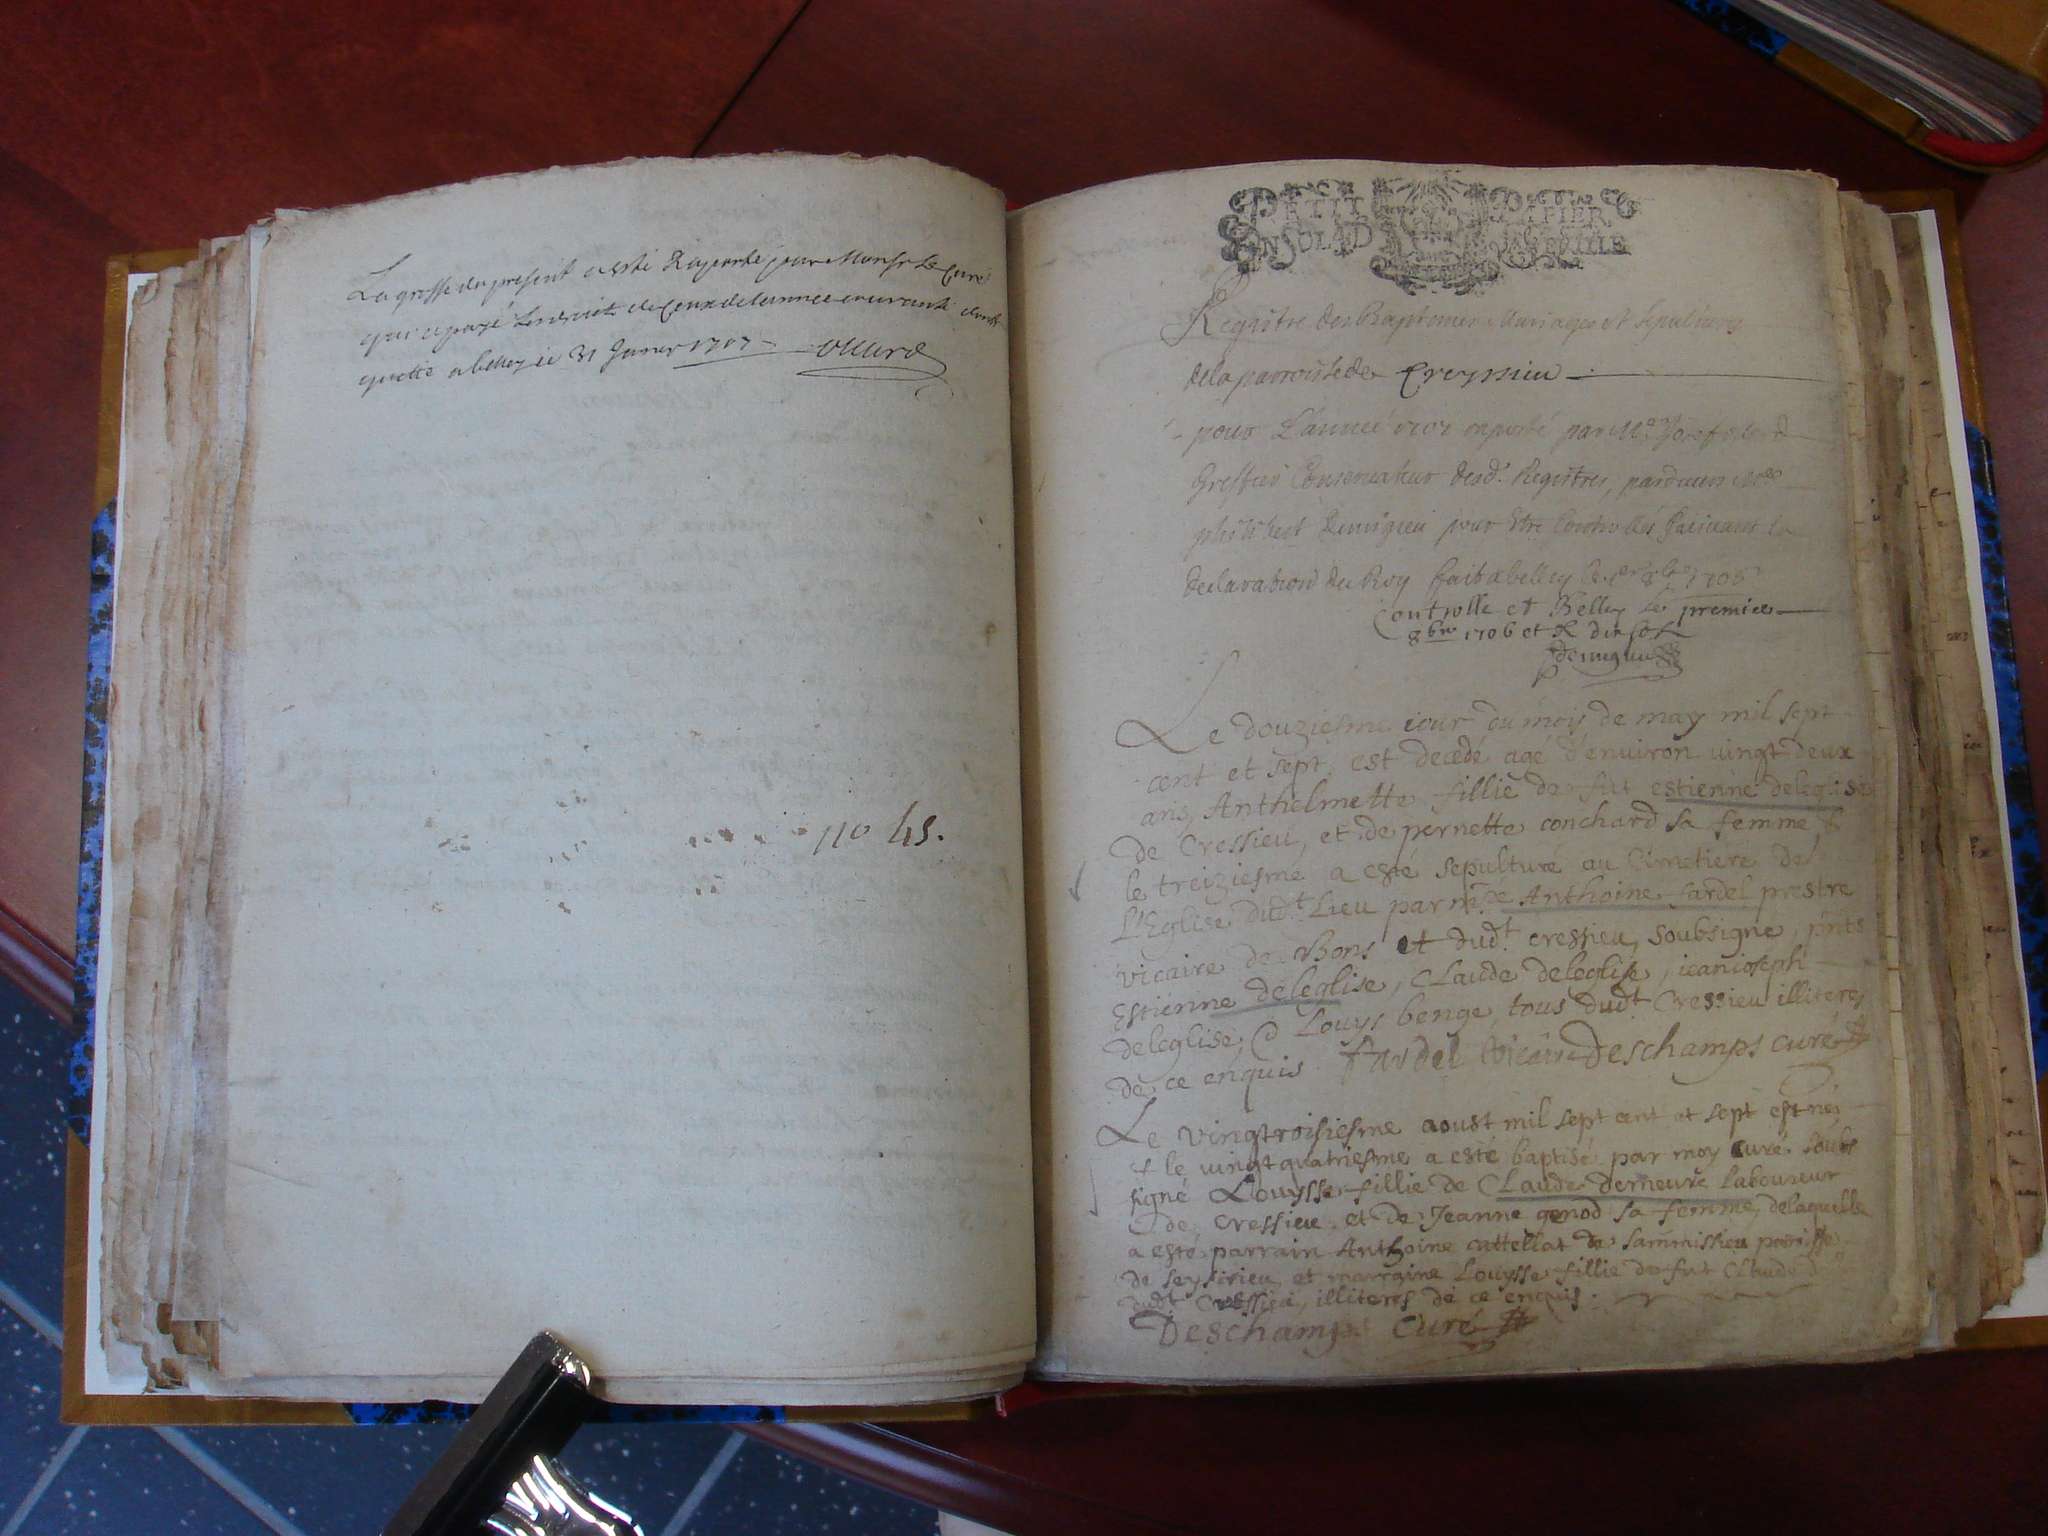 La grosse du present a esté Raporté par Monsr Le Curé
qui a payé Les droits de Ceux de lannee courante dont
quitté a belley ce 31 Janvier 1707
110 45.
PETIT PAPIER
UN SOL
Registre des Baptemes Mariages et Sepultures
de la parroisse de Creyssieu
pour L'année 1707 par Mre Josef
Greffier Conservateur desd. Registres, pardevers
pour Etre Controllés suivant la
declaration du Roy fait a belley le 1706
Controllé et Belley Le premier
8bre 1706 et R dix sols
Le douziesme iour du mois de may mil sept
cent et sept, est decedé agé d'environ vingt deux
ans, Anthelmette fillie de fut estienne deleglise
de Cressieu, et de pernette conchard sa femme &
le treiziesme a esté sepulturé au Cimetiere de
l'Eglise dudt. Lieu par mre Anthoine fardel prestre
vicaire de Bons et dudt. cressieu, soubsigné, pnts
Estienne deleglise, Claude deleglise, ieanioseph
deleglise, & Louys benge, tous dudt. Cressieu illiteres
de ce enquis fardel vicaire Deschamps curé
Le vingtroisiesme aoust mil sept cent et sept est né
& le vingtquatriesme a esté baptisé par moy curé soubs
signé Louysse fillie de Claude demeure laboureur
de cressieu et de Jeanne genod sa femme, de laquelle
a esté parrain Anthoine cattellat de sammissieu
de seyssirieu et marraine Louysse fillie de fut Claude
dudt Cressieu, illiteres de ce enquis.
Deschamps Curé